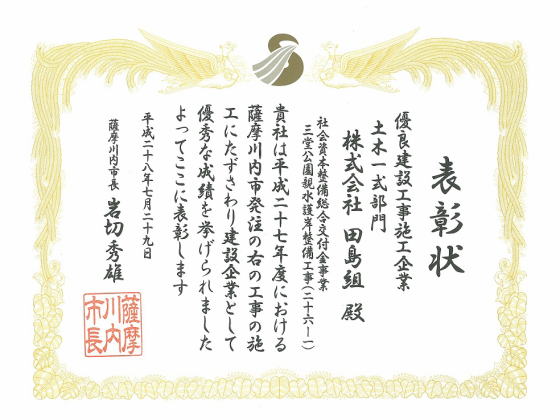 表彰状
優良建設工事施工企業
土木一式部門
株式会社 田島組 殿
社会資本整備総合交付金事業
三堂公園親水護岸整備工事(二十六―一)
貴社は平成二十七年度における
薩摩川内市発注の右の工事の施
工にたずさわり建設企業として
優秀な成績を挙げられました
よってここに表彰します
平成二十八年七月二十九日
薩摩川内市長 岩切秀雄
薩摩
川内
市長